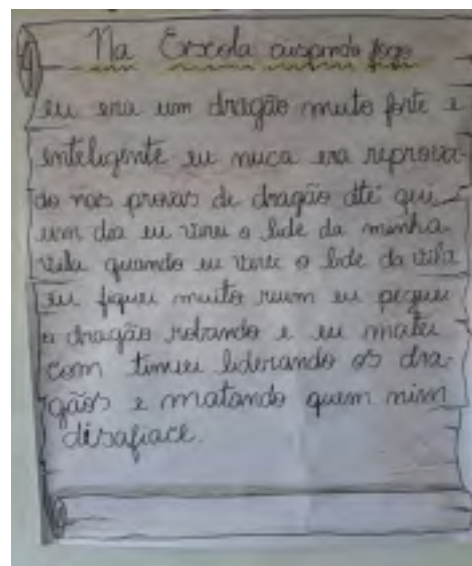 Na Escola cuspindo fogo
eu era um dragão muto forte e
inteligente eu nuca era reprova-
do nas provas de dragão até qui
um dia eu virei o lide da minha
vila quando eu virei o lide da vila
eu fiquei muito ruim eu peguei
o dragão robando e eu matei
com tinuei liderando os dra-
gãos e matando quem mim
disafiace.